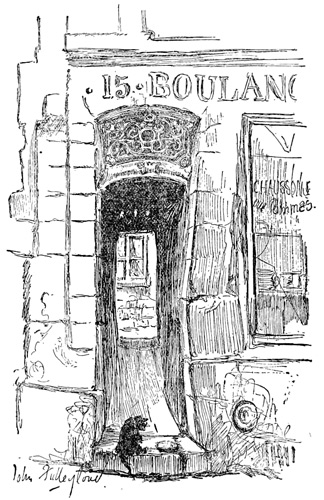 · 15 · BOULANG
CHAUSSONS
aux Pommes.
John Fulleylove